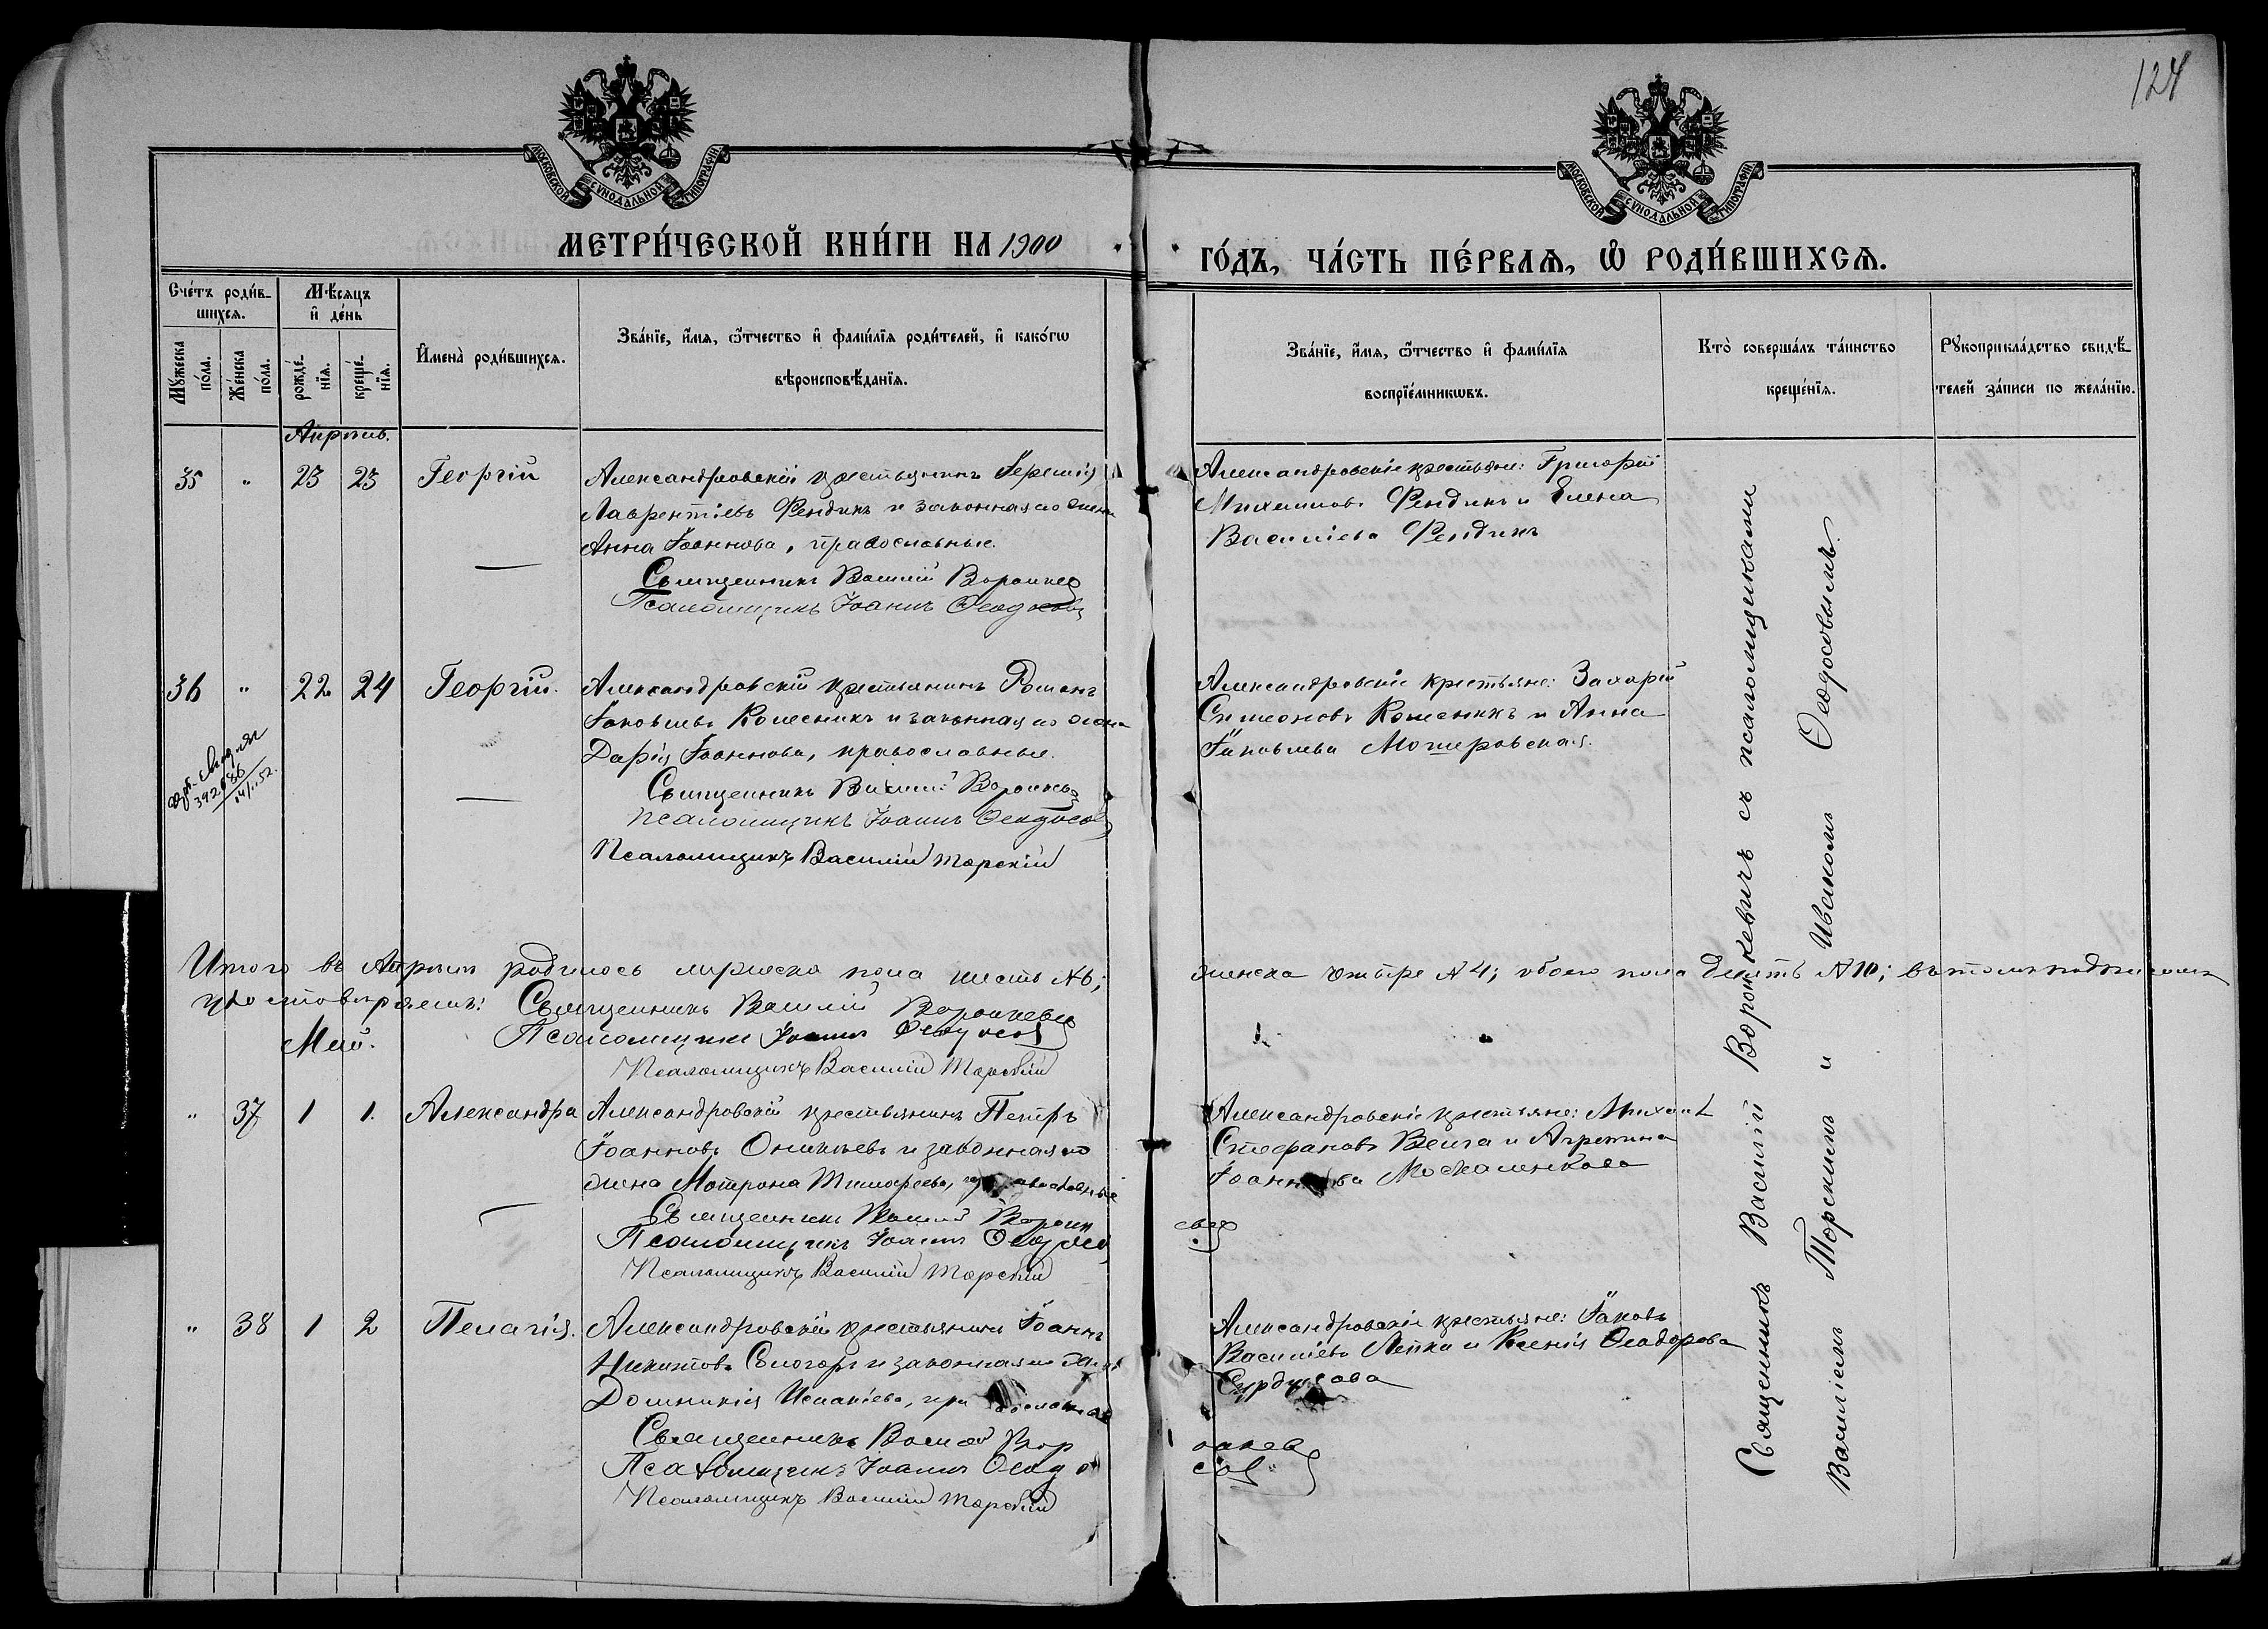 124
МОСКОВСКОЙ СѴНОДАЛЬНОЙ ТИПОГРАФІИ
МОСКОВСКОЙ СѴНОДАЛЬНОЙ ТИПОГРАФІИ
МЕТРИ́ЧЕСКОЙ КНИ́ГИ НА 1900
ГО́ДЪ, ЧА́СТЬ ПЕ́РВАѦ, Ѡ҆ РОДИ́ВШИХСѦ.
Сче́тъ роди́в-
шихсѧ.
Мꙋ́жеска по́ла.
Же́нска по́ла.
Мѣ́сѧцъ
и҆ де́нь
рожде́-
нїѧ.
креще́-
нїѧ.
И҆мена̀ роди́вшихсѧ.
Зва́нїе, и҆́мѧ, ѻ҆́тчество и҆ фами́лїѧ роди́телей, и҆ како́гѡ
вѣроисповѣ́данїѧ.
Зва́нїе, и҆́мѧ, ѻ҆́тчество и҆ фами́лїѧ
воспрїе́мникѡвъ.
Кто̀ соверша́лъ та́инство
креще́нїѧ.
Рꙋкоприкла́дство свидѣ́-
телей за́писи по жела́нїю.
Апрѣль.
35 " 23 23 Георгій
Александровскій крестьянинъ Іеремія
Лаврентіевъ Фендикъ и законная его жена
Анна Іоаннова, православные.
Священникъ Василій Воронкев
Псаломщикъ Іоаннъ Ѳеодосов
Александровскіе крестьяне: Григорій
Михаиловъ Фендикъ и Елена
Васильева Фендикъ
36 " 22 24 Георгій.
Александровскій крестьянинъ Романъ
Іаковлевъ Колесникъ и законная его жена
Дарія Іоаннова, православные.
Священникъ Василій Воронкев
Псаломщикъ Іоаннъ Ѳеодосов
Псаломщикъ Василій Торскій
Александровскіе крестьяне: Захарій
Симеоновъ Колесникъ и Анна
Іаковлева
392686
14/I.52.
Итого въ Апрѣлѣ родилось мужеска пола шесть №6;
женска четыре №4; обоего пола десять №10; въ томъ подписомъ
удостовѣряемъ: Священникъ Василій Воронкев
Май.
Псаломщикъ Іоаннъ Ѳеодосов
Псаломщикъ Василій Торскій
" 37 1 1. Александра
Александровскій крестьянинъ Петръ
Іоанновъ и законная его
жена Мотрона Тимофеева, православные
Священникъ Василій Воронкев
Псаломщикъ Іоаннъ Ѳеодосов
Псаломщикъ Василій Торскій
Александровскіе крестьяне: Михаилъ
Стефановъ Велча и Агрепина
Іоаннова Москаленкова
" 38 1 2 Пелагія.
Александровскій крестьянинъ Іоаннъ
Никитовъ и законная его жена
Домникія Исакіева, православные
Священникъ Василій Воронкев
Псаломщикъ Іоаннъ Ѳеодосов
Псаломщикъ Василій Торскій
Александровскіе крестьяне: Іаковъ
Васильевъ Лепка и Ксенія Ѳеодорова
Священникъ Василій Воронкевичъ съ псаломщиками
Василіемъ Торскимъ и Ивскомъ Ѳеодосовымъ.